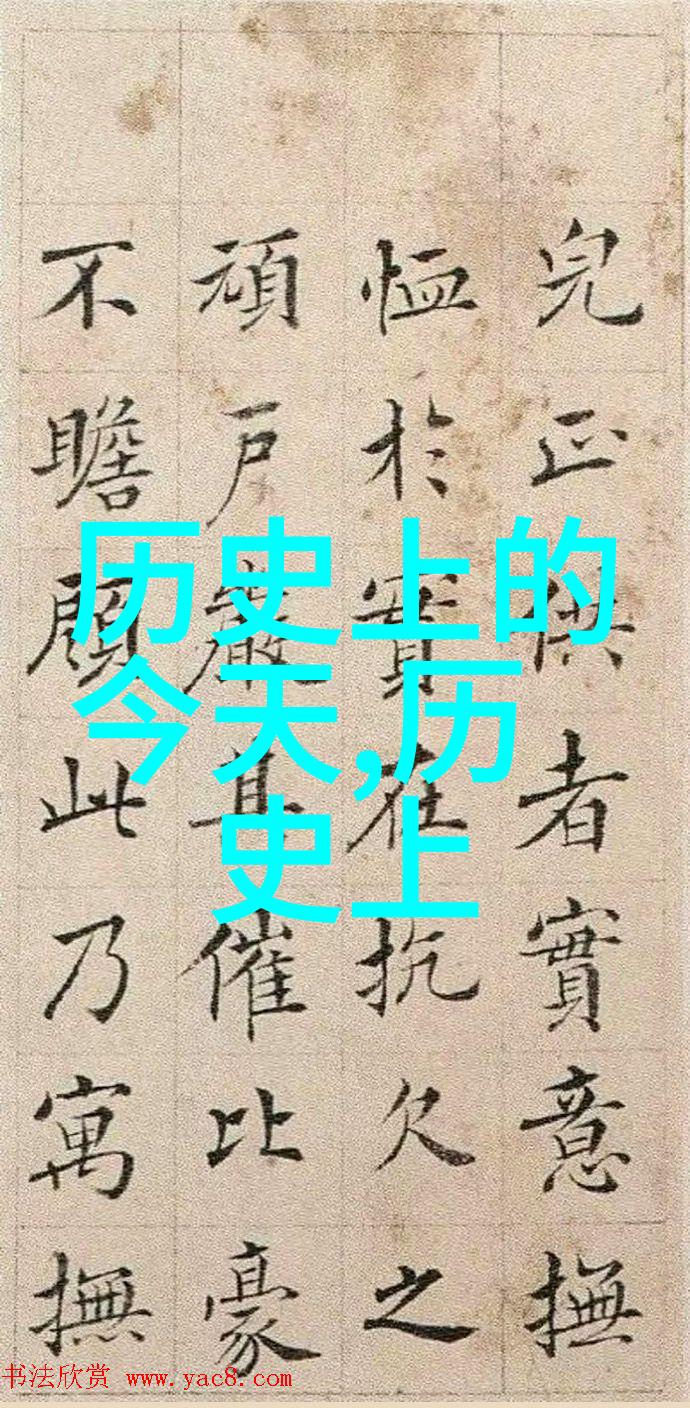 兇正供者實意撫
恤於實在抗欠之
頑戶嚴其催比豪
不瞻顧此乃寓撫
历史上的
今天,历
史上
书法欣赏 www.yac8.com